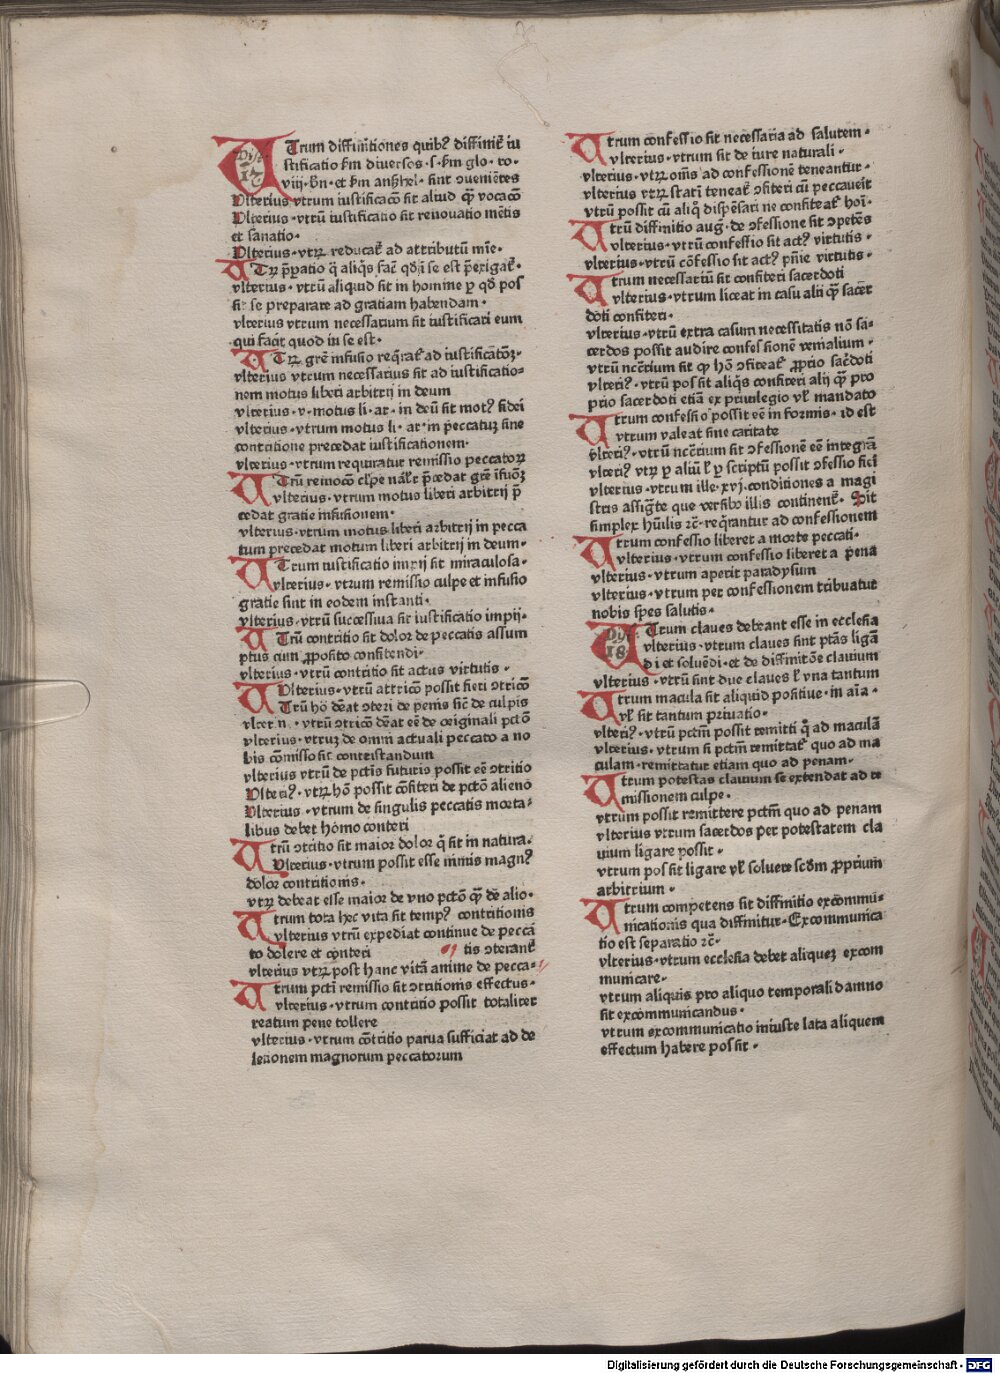 Dist. 17
UTrum diffinitiones quibꝰ diffinit̃ iu
stificatio ẜm diuersos · s · ẜm glo · ro ·
viii · ẜn · et ẜm anshel · sint ↄueniẽtes
Vlterius vtrum iustificacõ sit aliud q̃ȝ vocacõ
Vlterius · vtrũ iustificatio sit renouatio mẽtis
et sanatio ·
Vlterius · vtrꝝ reducat̃ ad attributũ mĩe ·
UTrꝝ p̃patio q̃ aliq̃s facĩt qd̃ ĩ se est p̃exigat̃ ·
vlterius · vtrũ aliquid sit in homine ꝑ qd̃ pos
sit se preparare ad gratiam habendam ·
vlterius vtrum necessarium sit iustificari eum
qui facit quod in se est ·
UTrꝝ grẽ infusio req̃rat̃ ad iustificatõȝ ·
vlterius vtrum necessarius sit ad iustificatio-
nem motus liberi arbitrij in deum
vlterius · v · motus li · ar · in deũ sit motꝰ fidei
vlterius · vtrum motus li · ar · in peccatuȝ sine
contritione precedat iustificationem ·
vlterius · vtrum requiratur remissio peccatoꝝ
UTrũ remocõ cl̃pe nãl̃r p̃cedat grẽ ĩfusõȝ
vlterius · vtrum motus liberi arbitrij p̃
cedat gratie infusionem ·
vlterius · vtrum motus liberi arbitrij in pecca
tum precedat motum liberi arbitrij in deum ·
UTrum iustificatio impij sit miraculosa ·
vlterius · vtrum remissio culpe et infusio
gratie sint in eodem instanti ·
vlterius · vtrũ successiua sit iustificatio impij ·
UTrũ contritio sit dolor de peccatis assum
ptus cum ꝓposito confitendi ·
vlterius · vtrũ contritio sit actus virtutis ·
UVlterius · vtrũ attricõ possit fieri ↄtricõ
Trũ hõ deat ↄteri de penis sic̃ de culpis
vlteri · vtrũ ↄtricõ deat eẽ de originali pctõ
vlterius · vtruȝ de omni actuali peccato a no
bis cõmisso sit contristandum
vlterius vtrũ de pctis̃ futuris possit eẽ ↄtritio
Vlteriꝰ · vtrꝝ hõ possit cõfiteri de pctõ alieno
Vlterius · vtrum de singulis peccatis morta-
libus debet homo conteri
Utrũ ↄtritio sit maior dolor q̃ sit in natura ·
Vlterius · vtrum possit esse nimis magnꝰ
dolor contritionis ·
vtrꝝ debeat esse maior de vno pctõ q̃ȝ de alio ·
Utrum tota hec vita sit tempꝰ contritionis
vlterius vtrũ expediat continue de pecca
to dolere et conteri tis ↄterant̃
vlterius vtrꝝ post hanc vitã anime de pecca-
Utrum pcti remissio sit ↄtritionis effectus ·
vlterius · vtrum contritio possit totaliter
reatum pene tollere
vlterius · vtrum cõtritio parua sufficiat ad de
letionem magnorum peccatorum
Utrum confessio sit necessaria ad salutem ·
vlterius · vtrum sit de iure naturali ·
vlterius · vtrꝝ om̃s ad confessionẽ teneantur ·
vlterius vtrꝝ statim teneat̃ ↄfiteri cũ peccauerit
vtrũ possit cũ aliq̃ dispẽsari ne confiteat̃ hoĩ ·
Utrũ diffinitio aug · de ↄfessione sit ↄpetẽs
vlterius · vtrũ confessio sit actꝰ virtutis ·
vlterius · vtrũ cõfessio sit actꝰ pñie virtutis ·
Utrum necessariũ sit confiteri sacerdoti
vlterius · vtrum liceat in casu alij q̃ȝ sacer
doti confiteri ·
vlterius · vtrũ extra casum necessitatis nõ sa-
cerdos possit audire confessionẽ venialium ·
vtrũ ncẽrium sit ꝙ hõ ↄfiteat̃ ꝓprio sac̃doti
vlteriꝰ · vtrũ possit aliq̃s confiteri alij q̃ȝ pro
prio sacerdoti etiã ex priuilegio vl̃ mandato
Utrum confessio possit eẽ informis · id est
vtrum valeat sine caritate
vlteriꝰ · vtrũ ncẽrium sit ↄfessionẽ eẽ integrã
vlteriꝰ vtrꝝ ꝑ aliũ l̃ ꝑ scriptũ possit ↄfessio fieri
vlterius · vtrum ille · xvj · conditiones a magi
stris assigñte que versibꝰ illis continent̃ · Sit
simplex hũilis rc̃ · req̃rantur ad confessionem
Utrum confessio liberet a morte peccati ·
vlterius · vtrum confessio liberet a pena
vlterius · vtrum aperit paradysum
vlterius · vtrum per confessionem tribuatur
nobis spes salutis ·
Dist. 18
UTrum claues debeant esse in ecclesia
vlterius · vtrum claues sint ptãs ligã
di et soluẽdi · et de diffinitõe clauium
vlterius · vtrũ sint due claues l̃ vna tantum
Utrum macula sit aliquid positiue · in aĩa ·
vl̃ sit tantum priuatio ·
vlteriꝰ · vtrũ pctm̃ possit remitti q̃ ad maculã
vlterius · vtrum si pctm̃ remittat̃ quo ad ma
culam · remittatur etiam quo ad penam ·
Utrum potestas clauium se extendat ad re
missionem culpe ·
vtrum possit remittere pctm̃ quo ad penam
vlterius vtrum sacerdos per potestatem cla
uium ligare possit ·
vtrum possit ligare vl̃ soluere scd̃m ꝓprium
arbitrium ·
Utrum competens sit diffinitio excõmu-
nicationis qua diffinitur · Excommunica
tio est separatio rc̃ ·
vlterius · vtrum ecclesia debet aliqueȝ excom
municare ·
vtrum aliquis pro aliquo temporali damno
sit excõmunicandus ·
vtrum excommunicatio iniuste lata aliquem
effectum habere possit ·
Digitalisierung gefördert durch die Deutsche Forschungsgemeinschaft - DFG